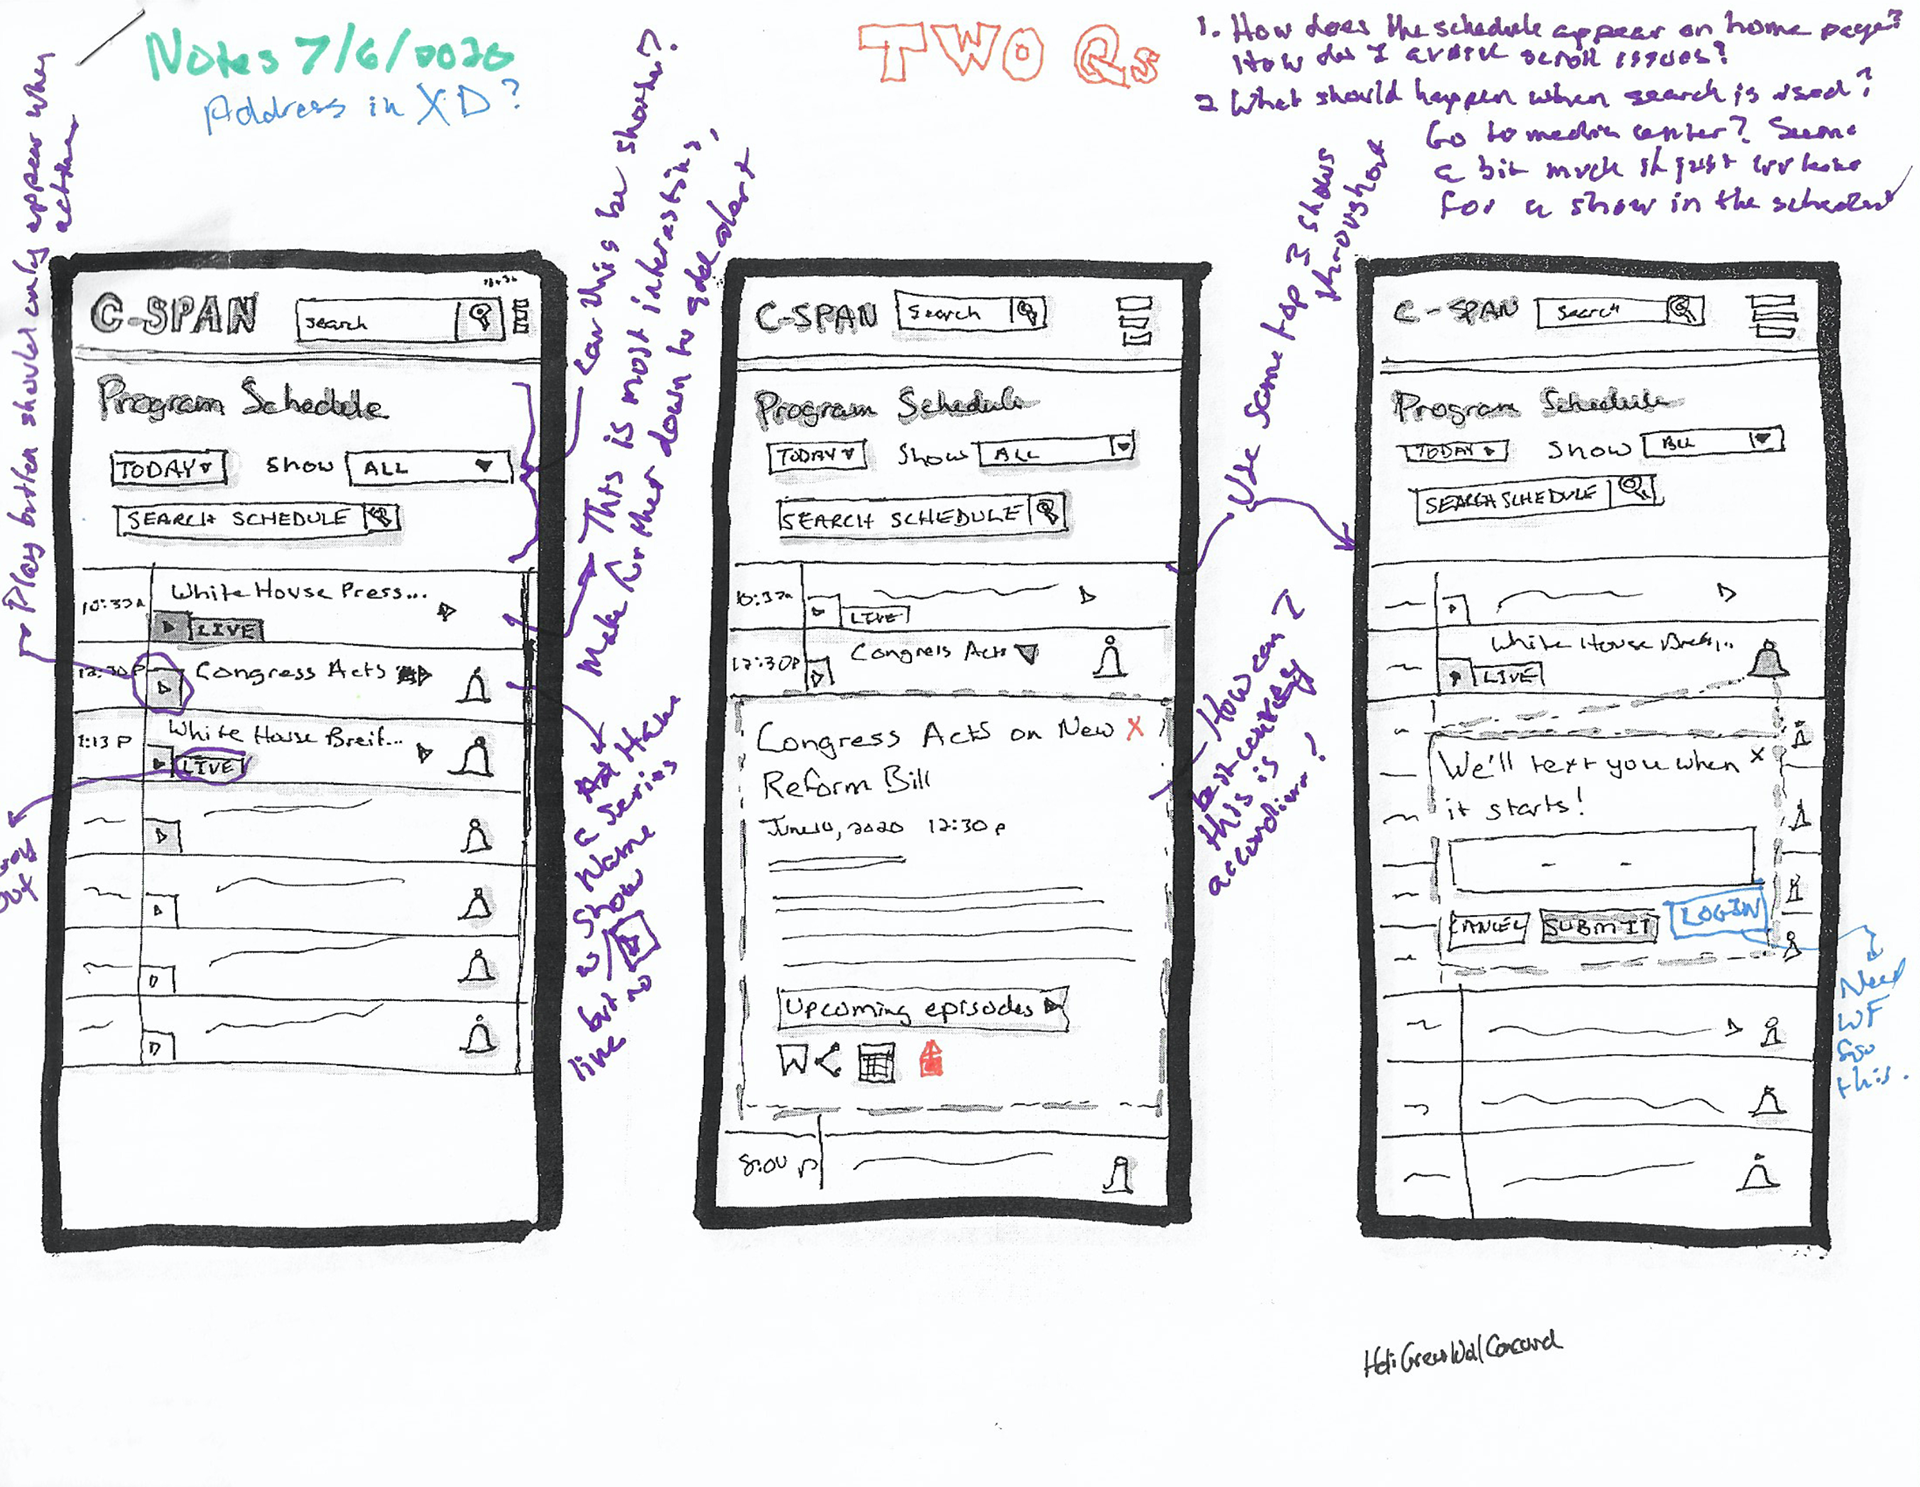 Notes 7/6/2020
Address in XD?
TWO Qs
1. How does the schedule appear on home page?
How do I avoid scroll issues?
2 What should happen when search is used?
Go to media center? Seems
a bit much if just
for a show in the schedule
Play button should only appear when
active
Can this be shorter?
This is most interesting,
Make further down to add alert
Use same top 3 shows
throughout
C-SPAN
search
Program Schedule
TODAY
Show
ALL
SEARCH SCHEDULE
10:30a
White House Press...
LIVE
12:30P
Congress Acts
1:13 P
White House Breif...
LIVE
Make
a series
Name
w Show
but no
live
C-SPAN
Search
Program Schedule
TODAY
Show
ALL
SEARCH SCHEDULE
10:30a
LIVE
12:30P
Congress Acts
Congress Acts on New X
Reform Bill
June 10, 2020 12:30p
Upcoming episodes
8:00 p
How can I
best convey
this is
accordion?
C-SPAN
Search
Program Schedule
TODAY
Show
ALL
SEARCH SCHEDULE
White House Breif...
LIVE
We'll text you when x
it starts!
- -
CANCEL
SUBMIT
LOGIN
Need
WF
for
this.